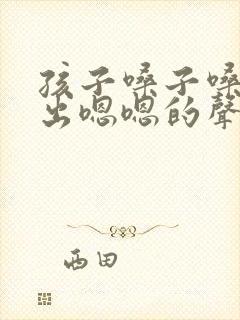 孩子嗓子嗓
出嗯嗯的聲
西田